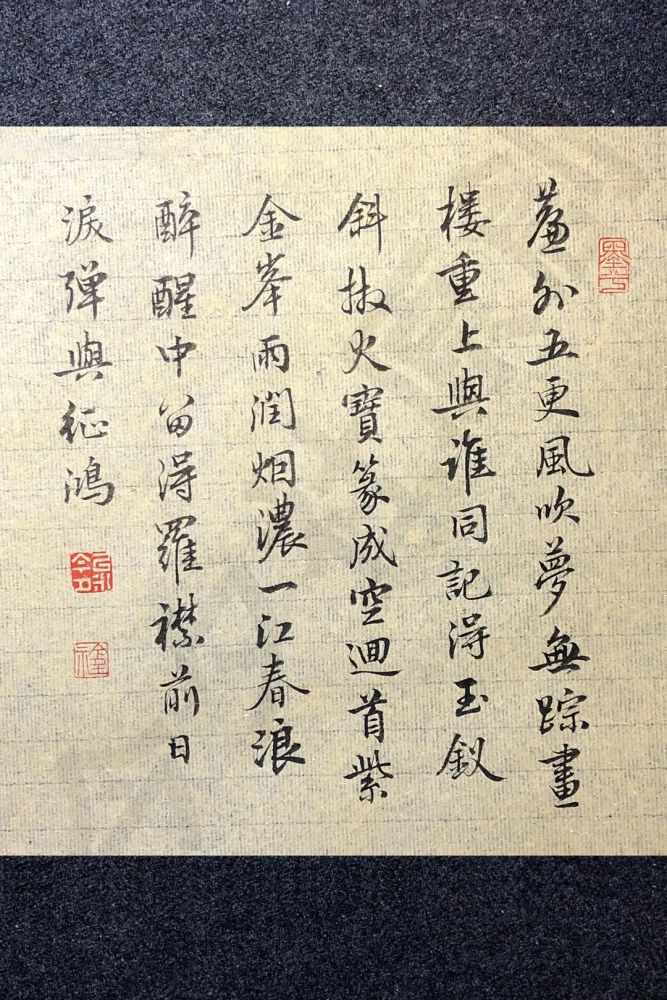 簾外五更風吹夢無踪畫
樓重上與誰同記得玉釵
斜撥火寶篆成空迴首紫
金峯雨潤烟濃一江春浪
醉醒中留得羅襟前日
淚彈與征鴻